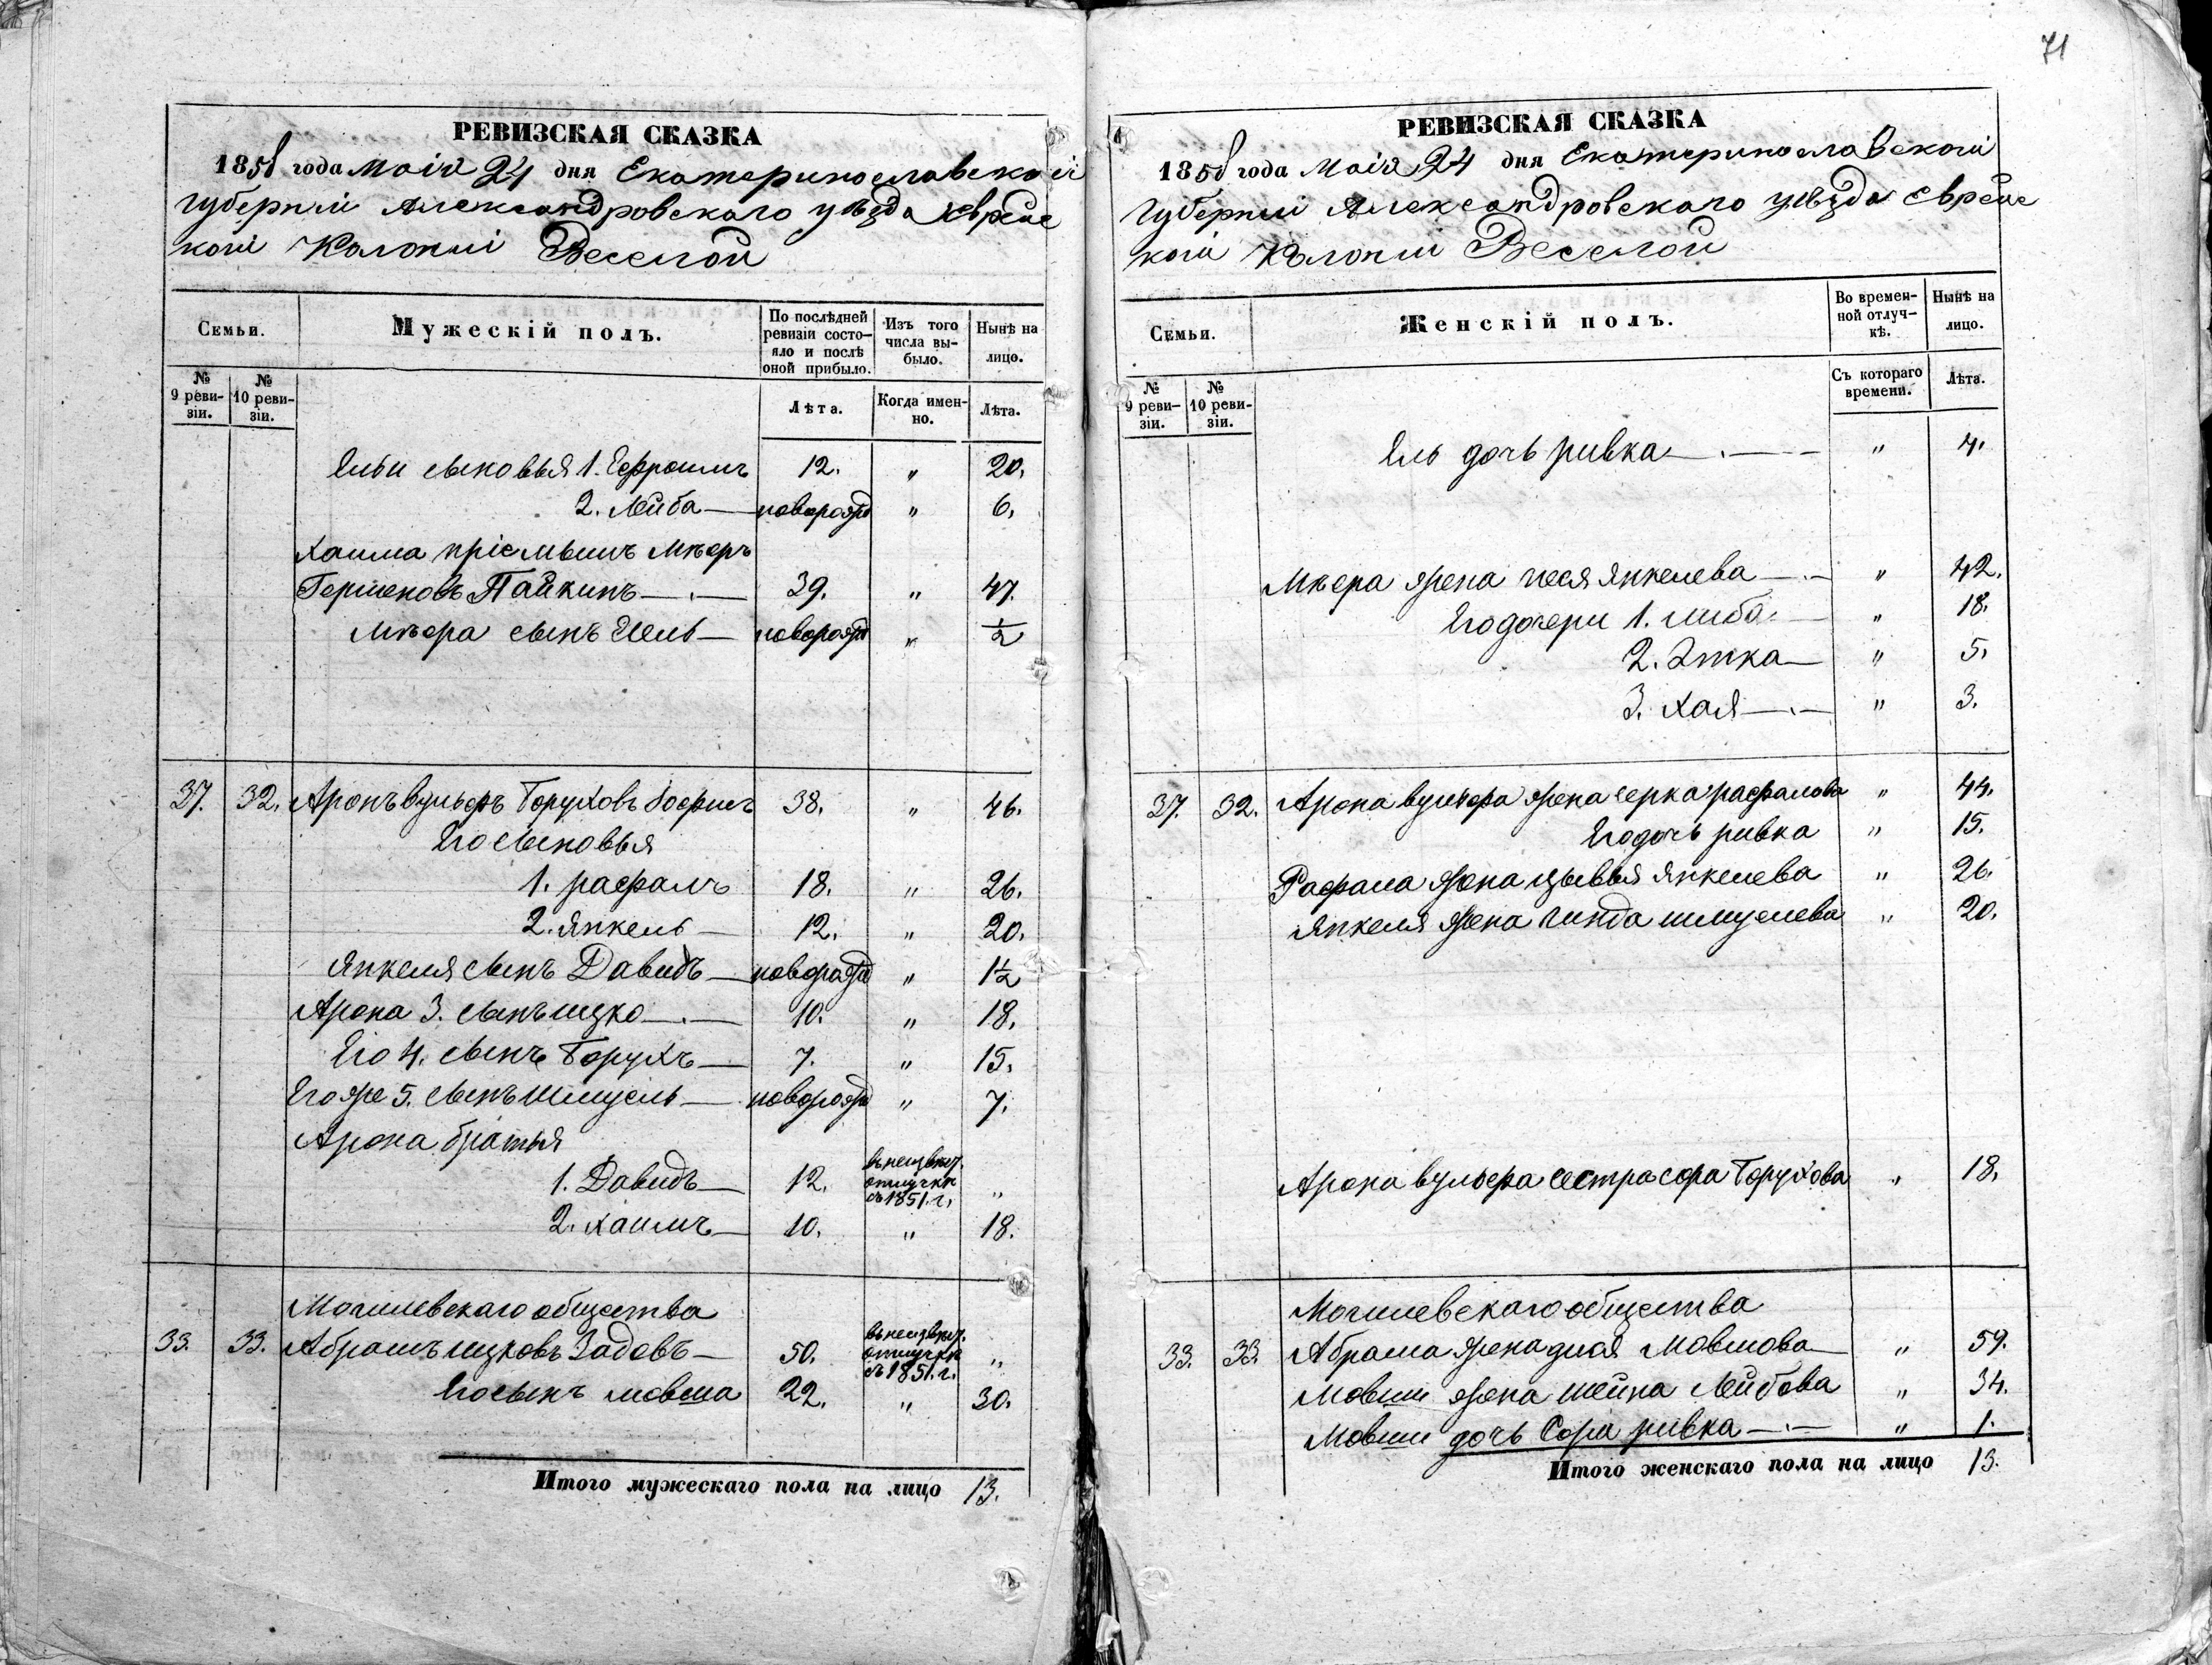 71
РЕВИЗСКАЯ СКАЗКА
1858 года Маія 24 дня Екатеринославской
Губерніи Александровскаго уѣзда Еврейс
кой Колоніи Веселой
Семьи.
Мужескій полъ.
По послѣдней ревизіи состо-
яло и послѣ оной прибыло.
Изъ того числа вы-
было.
Нынѣ на лицо.
№ 9 реви-
зіи.
№ 10 реви-
зіи.
Лѣта.
Когда имен-
но.
Лѣта.
Ельи сыновья 1. Ефроимъ 12. " 20.
2. Лейба — новорожд " 6.
Хаима пріемышъ Мѣеръ
Гершеновъ Пайкинъ — 39. " 47.
Мѣера сынъ Іель — новорожд " ½
37. 32. Аронъ вульфъ Боруховъ 38. " 46.
Его сыновья
1. рафалъ 18. " 26.
2. Янкель — 12. " 20.
Янкеля сынъ Давидъ — новорожд " 1½
Арона 3. сынъ ицко — 10. " 18.
Его 4. сынъ Борухъ — 7. " 15.
Его же 5. сынъ Шмуель — новорожд " 7.
Арона братья
1. Давидъ — 12. въ неизвѣст. отлучкѣ съ 1851. г. "
2. хаимъ — 10. " 18.
Могилевскаго общества
33. 33. Абрамъ ицковъ Задовъ — 50. въ неизвѣст. отлучкѣ съ 1851. г. "
Его сынъ мовша 22. " 30.
Итого мужескаго пола на лицо 13.
РЕВИЗСКАЯ СКАЗКА
1858 года Маія 24 дня Екатеринославской
Губерніи Александровскаго уѣзда Еврейс
кой Колоніи Веселой
Семьи.
Женскій полъ.
Во времен-
ной отлуч-
кѣ.
Нынѣ на лицо.
№ 9 реви-
зіи.
№ 10 реви-
зіи.
Съ котораго времени.
Лѣта.
Ель дочь ривка — " 4.
Мѣера жена песя Янкелева — " 42.
Его дочери 1. либа — " 18.
2. Этка — " 5.
3. хая — " 3.
37. 32. Арона вульфа жена черка рафалова " 44.
Его дочь ривка " 15.
Рафала жена цывья Янкелева " 26.
Янкеля жена гинда шмуелева " 20.
Арона вульфа сестра сора Борухова " 18.
Могилевскаго общества
33. 33. Абрама жена Мовшова — " 59.
Мовши жена шейна Лейбова " 34.
Мовши дочь Сора ривка — " 1.
Итого женскаго пола на лицо 13.